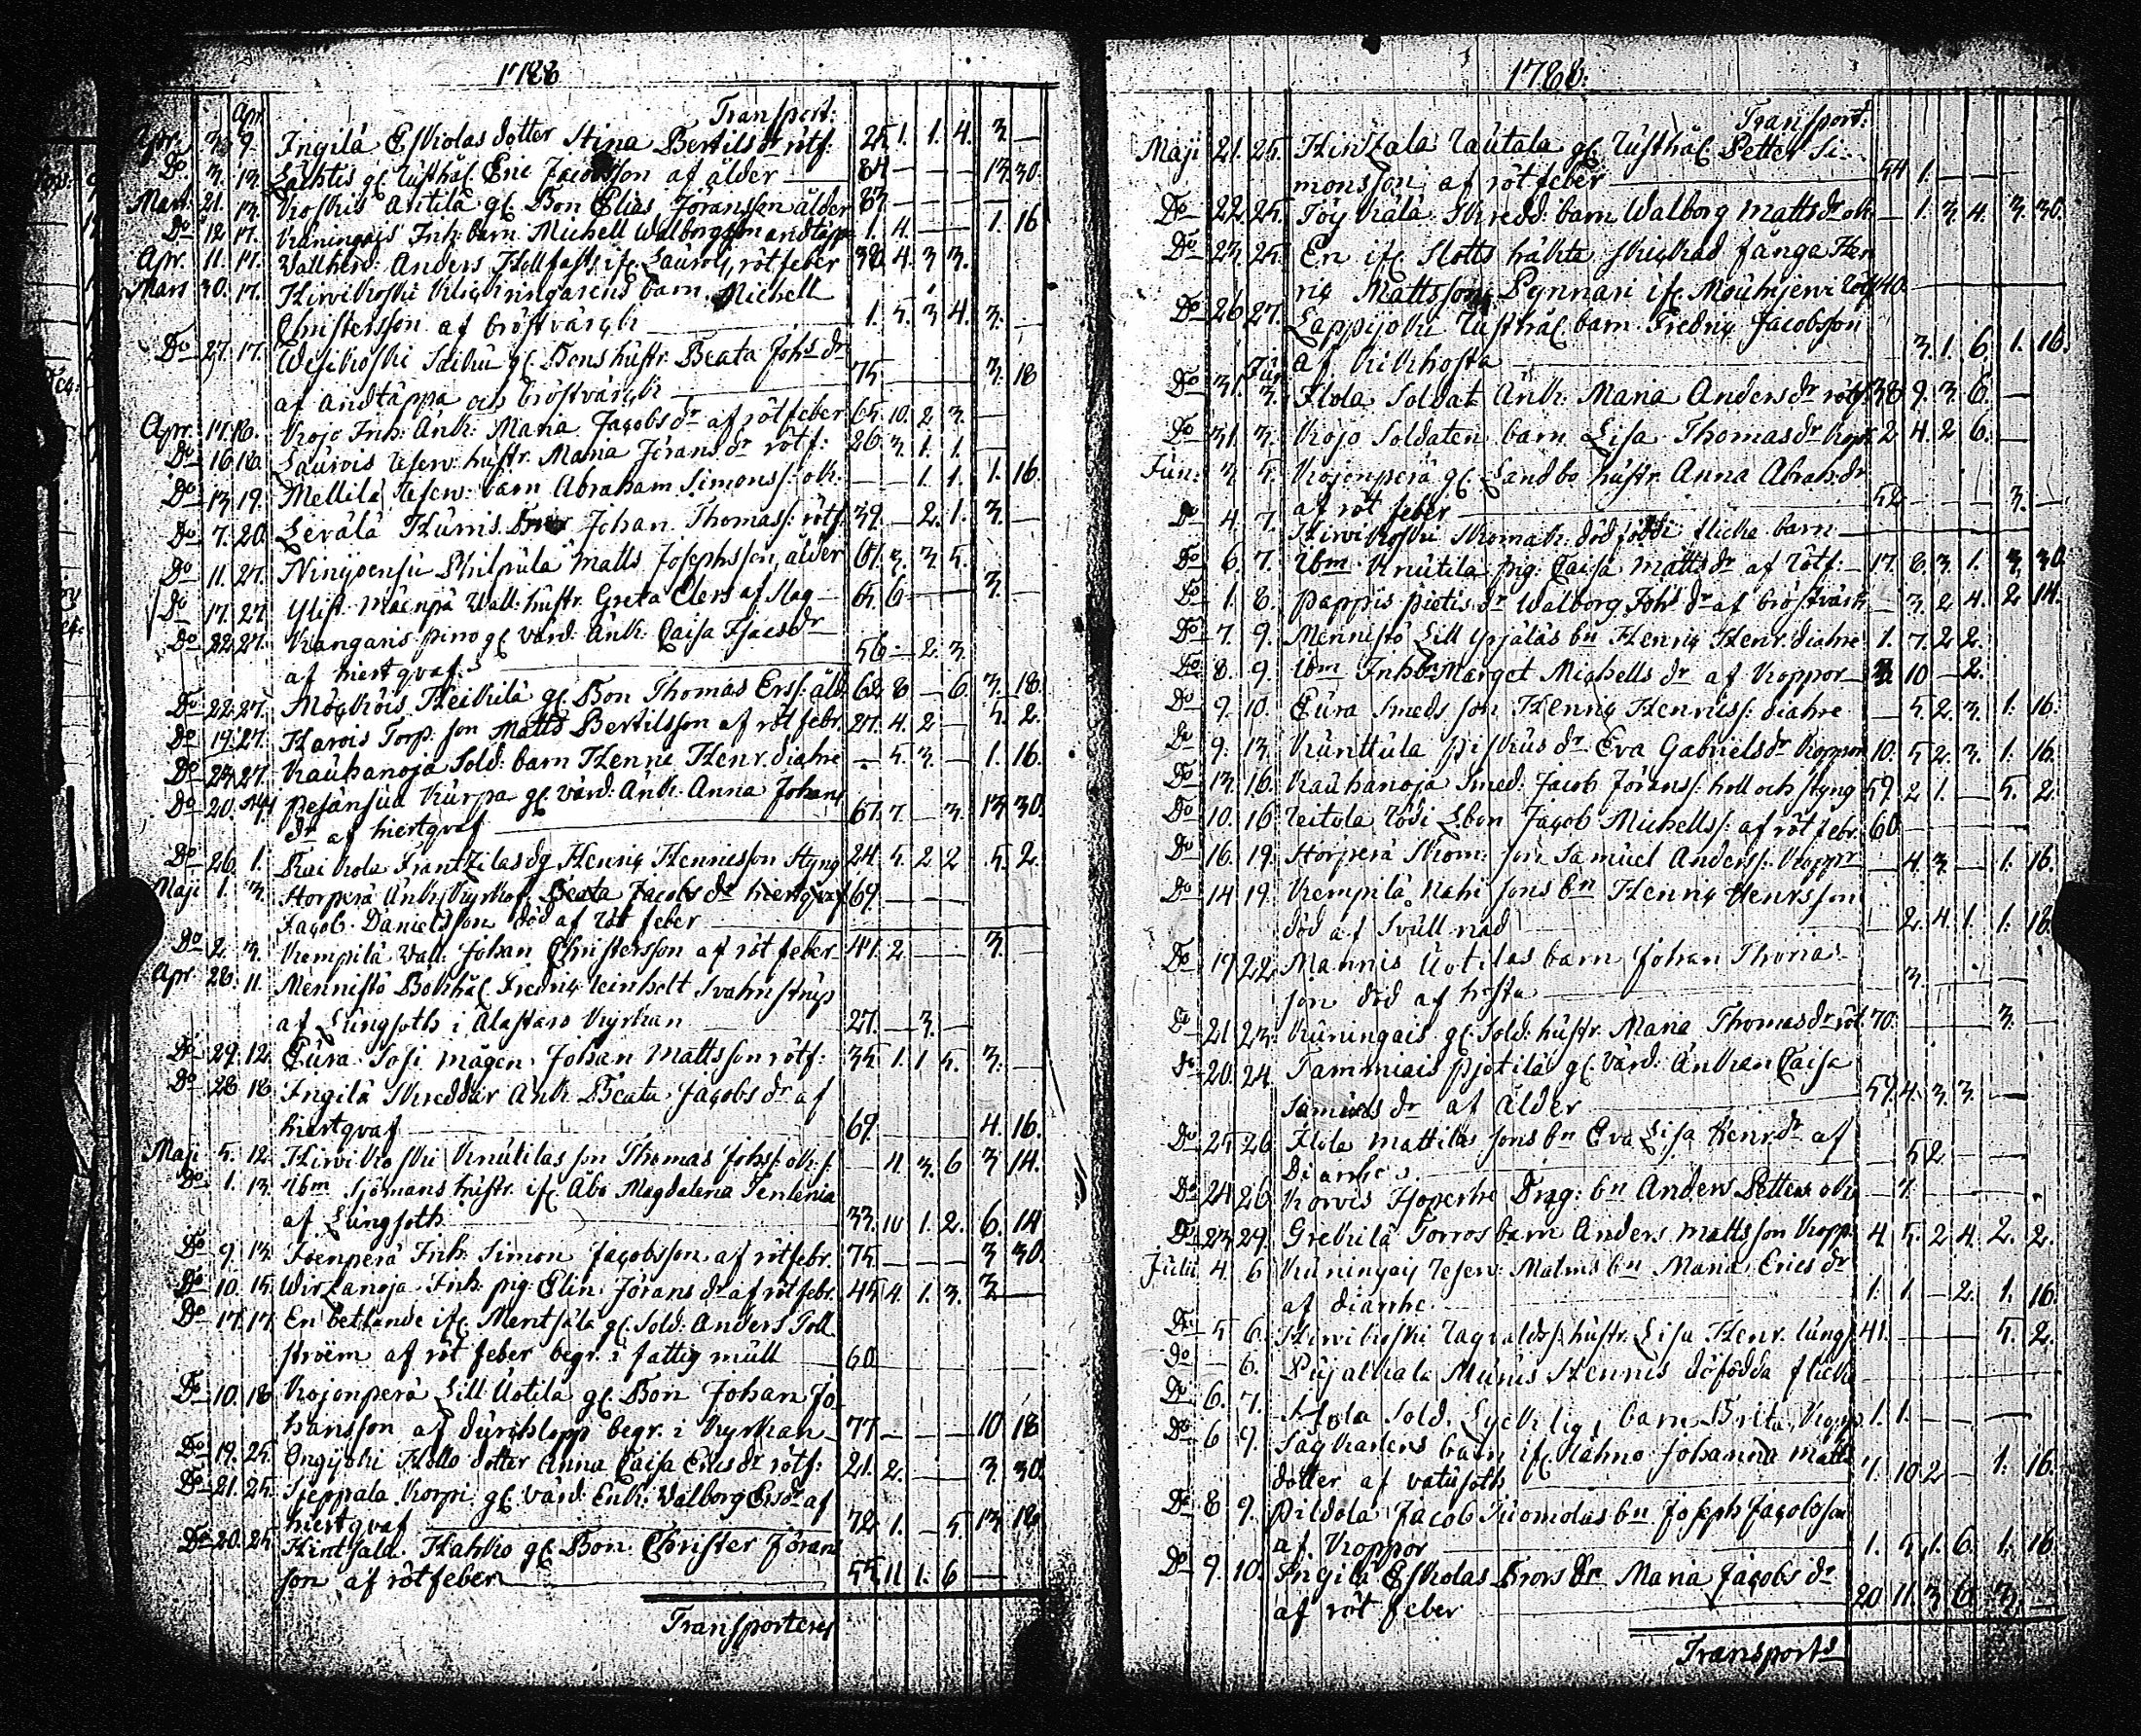 1788
Transport:
Apr. 3. 9. Ingilä Eskolas dotter Stina Bertils dr rötf: 25. 1. 1. 4. 3. —
Do 3. 13. Lächtis gl. Rusthål. Eric Jacobsson af ålder — 84 — — — 13. 30.
Mart. 21. 13. Koskis Antila gl. Bon Elias Jöransson ålder 83. — — — —
Do 12 17. Kuningais Inh: barn Michell Walborgsson andtäpp 1. 4. — — 1. 16
Apr. 11. 17. Wallherd: Anders Hollfast ifr. Lauvois, rötfeber 38. 4. 3 3.
Mart 30. 17. Hirvikoski barn Michell
Christersson af bröstvärck — 1. 5. 3 4. 3. —
Do 27. 17. Wesikoski Seiku gl. Bons hustr. Beata Johs dr
af Andtäppa och bröstvärck — 75 — — — 3. 18
Apr. 17. 18. Kojo Inh: Änk: Maria Jacobs dr af rötfeber 65. 10. 2. 3. —
Do 16 18. Lauvois Reserv: hustr. Maria Jörans dr rötf: 26. 3. 1. 1. —
Do 13 19. Mellilä Reserv: barn Abraham Simonss: ok: — — 1. 1. 1. 16.
Do 7. 20. Levälä Hurris Johan Thomass: rötf. 39. — 2. 1. 3. —
Do 11. 27. Ninijoensu Philpula Matts Josephsson, ålder 61. 3. 3 5.
Do 17. 27 Ylist. Mäenpä Wall: hustr. Greta Clers af slag — 65. 6 — — 3. —
Do 22 27. Kangaris pino gl. värd: Änk: Caisa Isacs dr
af hiertqvaf. — 56 — 2. 3.
Do 22. 27. Möckois Heikilä gl. Bon Thomas Erss: åld. 68. 8 — 6. 3. 18.
Do 19. 27. Harois Torp. son Matts Bertilsson af rötfebr. 27. 4. 2 — 5. 2.
Do 23. 27. Kauhanoja Sold: barn Henric Henr. diahre — 5. 3. — 1. 16.
Do 20. Pesänsua Kurpa gl. värd: Änk: Anna Johans
dr af hiertqvaf — 67. 7. — 3. 13 30.
Do 26. 1. Raikola Frantzilas dg. Henric Henrisson styng 24. 5. 2 2 5. 2.
Maji 1. 3. Storperä Änk: Beata Jacobs dr hiertqvaf 69 — — — —
Jacob Danielsson död af Röt feber —
Do 2. 3. Kempilä Wall: Johan Christersson af röt feber 47. 2 — — 3. —
Apr 26. 11. Mennistö Bokhål. Fredric Reinholt Svahnström
af Lungsoth i Alastaro Kyrkan — 27. — 3. —
Do 29. 12. Eura Sosi mågen Johan Mattsson rötf: 35 1. 1 5. 3. —
Do 28 18 Ingilä Skreddar Änk: Beata Jacobs dr af
hiertqvaf — 69. — 4. 16.
Maji 5. 12. Hirvikoski Knutilas son Thomas Johss: ok: s. — 11. 3. 6 3 14.
Do 1. 13. Ibm Sjömans hustr. ifr. Åbo Magdalena Tenlenia
af Lungsoth — 33. 10 1. 2. 6. 14
Do 9. 13. Isenperä Inh: Simon Jacobsson af rötfebr. 75. — — — 3 30.
Do 10. 15. Wirzanoja Inh: pig. Elin Jörans dr af rötfebr. 45 4. 1. 3. 3 —
Do 17. 17. En bettlande ifr. Mentsälä gl. Sold: Anders Soll
ström af röt feber begr. i fattig mull — 60
Do 10. 18 Kojonperä Lill Uotila gl. Bon Johan Jo
hansson af durchlopp begr. i Kyrkan — 77 — — — 10 18
Do 19. 25. Ongijoki Hollo dotter Anna Caisa Erics dr rötf: 21. 2. — — 3. 30.
Do 21. 25. Seppala Korpi gl. värd: Enk: Walborg Ers dr af
hiertqvaf — 72 1. — 5. 13. 18
Do 20. 25. Hintsala Hahko gl. Bon Christer Jörans
son af rötfeber — 55. 11 1. 6 —
Transporteres
1788.
Transport:
Maji 21. 25. Hinzala Rautala gl. Rusthål. Petter Si-
monsson af rötfeber — 54 1. — —
Do 22. 25. Jöy Kälä Skredd: barn Walborg Matts dr ok — 1. 3. 4. 3. 30.
Do 23. 25. En ifr. Slotts häkta skickad fånga Hen
ric Mattsson Pynnäri ifr. Mouhijervi Röt 40. —
Do 26 27. Lappijoki Rusthål. barn Fredric Jacobsson
af Kikhosta — 3. 1. 6. 1. 16.
Jun.
Do 31. 3. Flola Soldat Änk: Maria Anders dr rötf. 38 9. 3. 6. —
Do 31. 3. Kojo Soldaten barn Lisa Thomas dr kopr. 2 4. 2 6. —
Jun: 3. 5. Kojonperä gl. Landbo hustr. Anna Abrah: dr
af röt feber — 52 — — — 3. —
Do 4. 7. Hirvikoski Skomak: död födde flicke barn —
Do 6. 7. Ibm Knutila pig: Caisa Matts dr af Rötf: — 17. 8. 3. 1. 3. 30
Do 1. 8. Pappis pietis dr Walborg Johs dr af bröstvärk — 3. 2 4. 2 14.
Do 7. 9. Mennistö Lill Yrjäläs bn Henric Henr. diahre 1. 7. 2 2.
Do 8. 9. Ibm Inh: bn Marget Michells dr af Koppor — 3 10 — 2.
Do 9. 10. Eura Smeds son Henric Henricss: diahre — 5. 2. 3. 1. 16.
Do 9. 13. Kunttula piskus dr Eva Gabriels dr Koppor 10. 5 2. 3. 1. 16.
Do 13. 16. Kauhanoja Smed: Jacob Jöranss: holl och styng 59. 2 1. — 5. 2.
Do 10. 16 Reitola Rödi Lbon Jacob Michellss: af röt febr. 60 — — —
Do 16. 19. Storperä Skom: son Samuel Anderss: Koppr — 4 3. — 1. 16.
Do 14 19. Kempilä Kahi sons bn Henric Henrsson
död af Svullnad — 2. 4. 1. 1. 18.
Do 19 22 Mannis Uotilas barn Johan Thoma-
son död af hosta — 3. —
Do 21 23. Kuningais gl. Sold: hustr. Maria Thomas dr röt. 70. — — 3. —
Do 20. 24. Tammiais Pjotilä gl. värd: Änkan Caisa
Samuels dr af Ålder — 59. 4. 3. 3. —
Do 25 26 Flola Mattilas sons bn Eva Lisa Henr. dr af
Diarrhe. — 5 2 — —
Do 24 26 Korvis Hjoperhe Dräg: bn Anders Petters ok — 7. —
Do 23 29. Grekilä Torros barn Anders Mattsson Kopp. 4. 5. 2 4. 2. 2.
Julii 4. 6 Kuningais Reserv: Malms bn Maria Erics dr
af diarrhe. — 1. 1. — 2. 1. 16.
Do 5 6. Hirvikoski Ragvalds hustr. Lisa Henr. lungs 41. — — — 5. 2.
Do — 6. Pujalkala Munis Hennis döfödda flicka
Do 6. 7. Flola Sold. Lycklig, barn Brita Kopp. 1. 1. — — —
Do 6 9. Sagkarlens barn ifr. Kahno Johanna Matts
dotter af vatusoth — 7. 10 2 — 1. 16.
Do 8 9. Pildola Jacob Tuomolas bn Joseph Jacobsson
af Koppor — 1. 5. 1. 6. 1. 16
Do 9. 10. Ingilä Eskolas Brors dr Maria Jacobs dr
af röt feber — 20 11. 3 6. 3. —
Transports